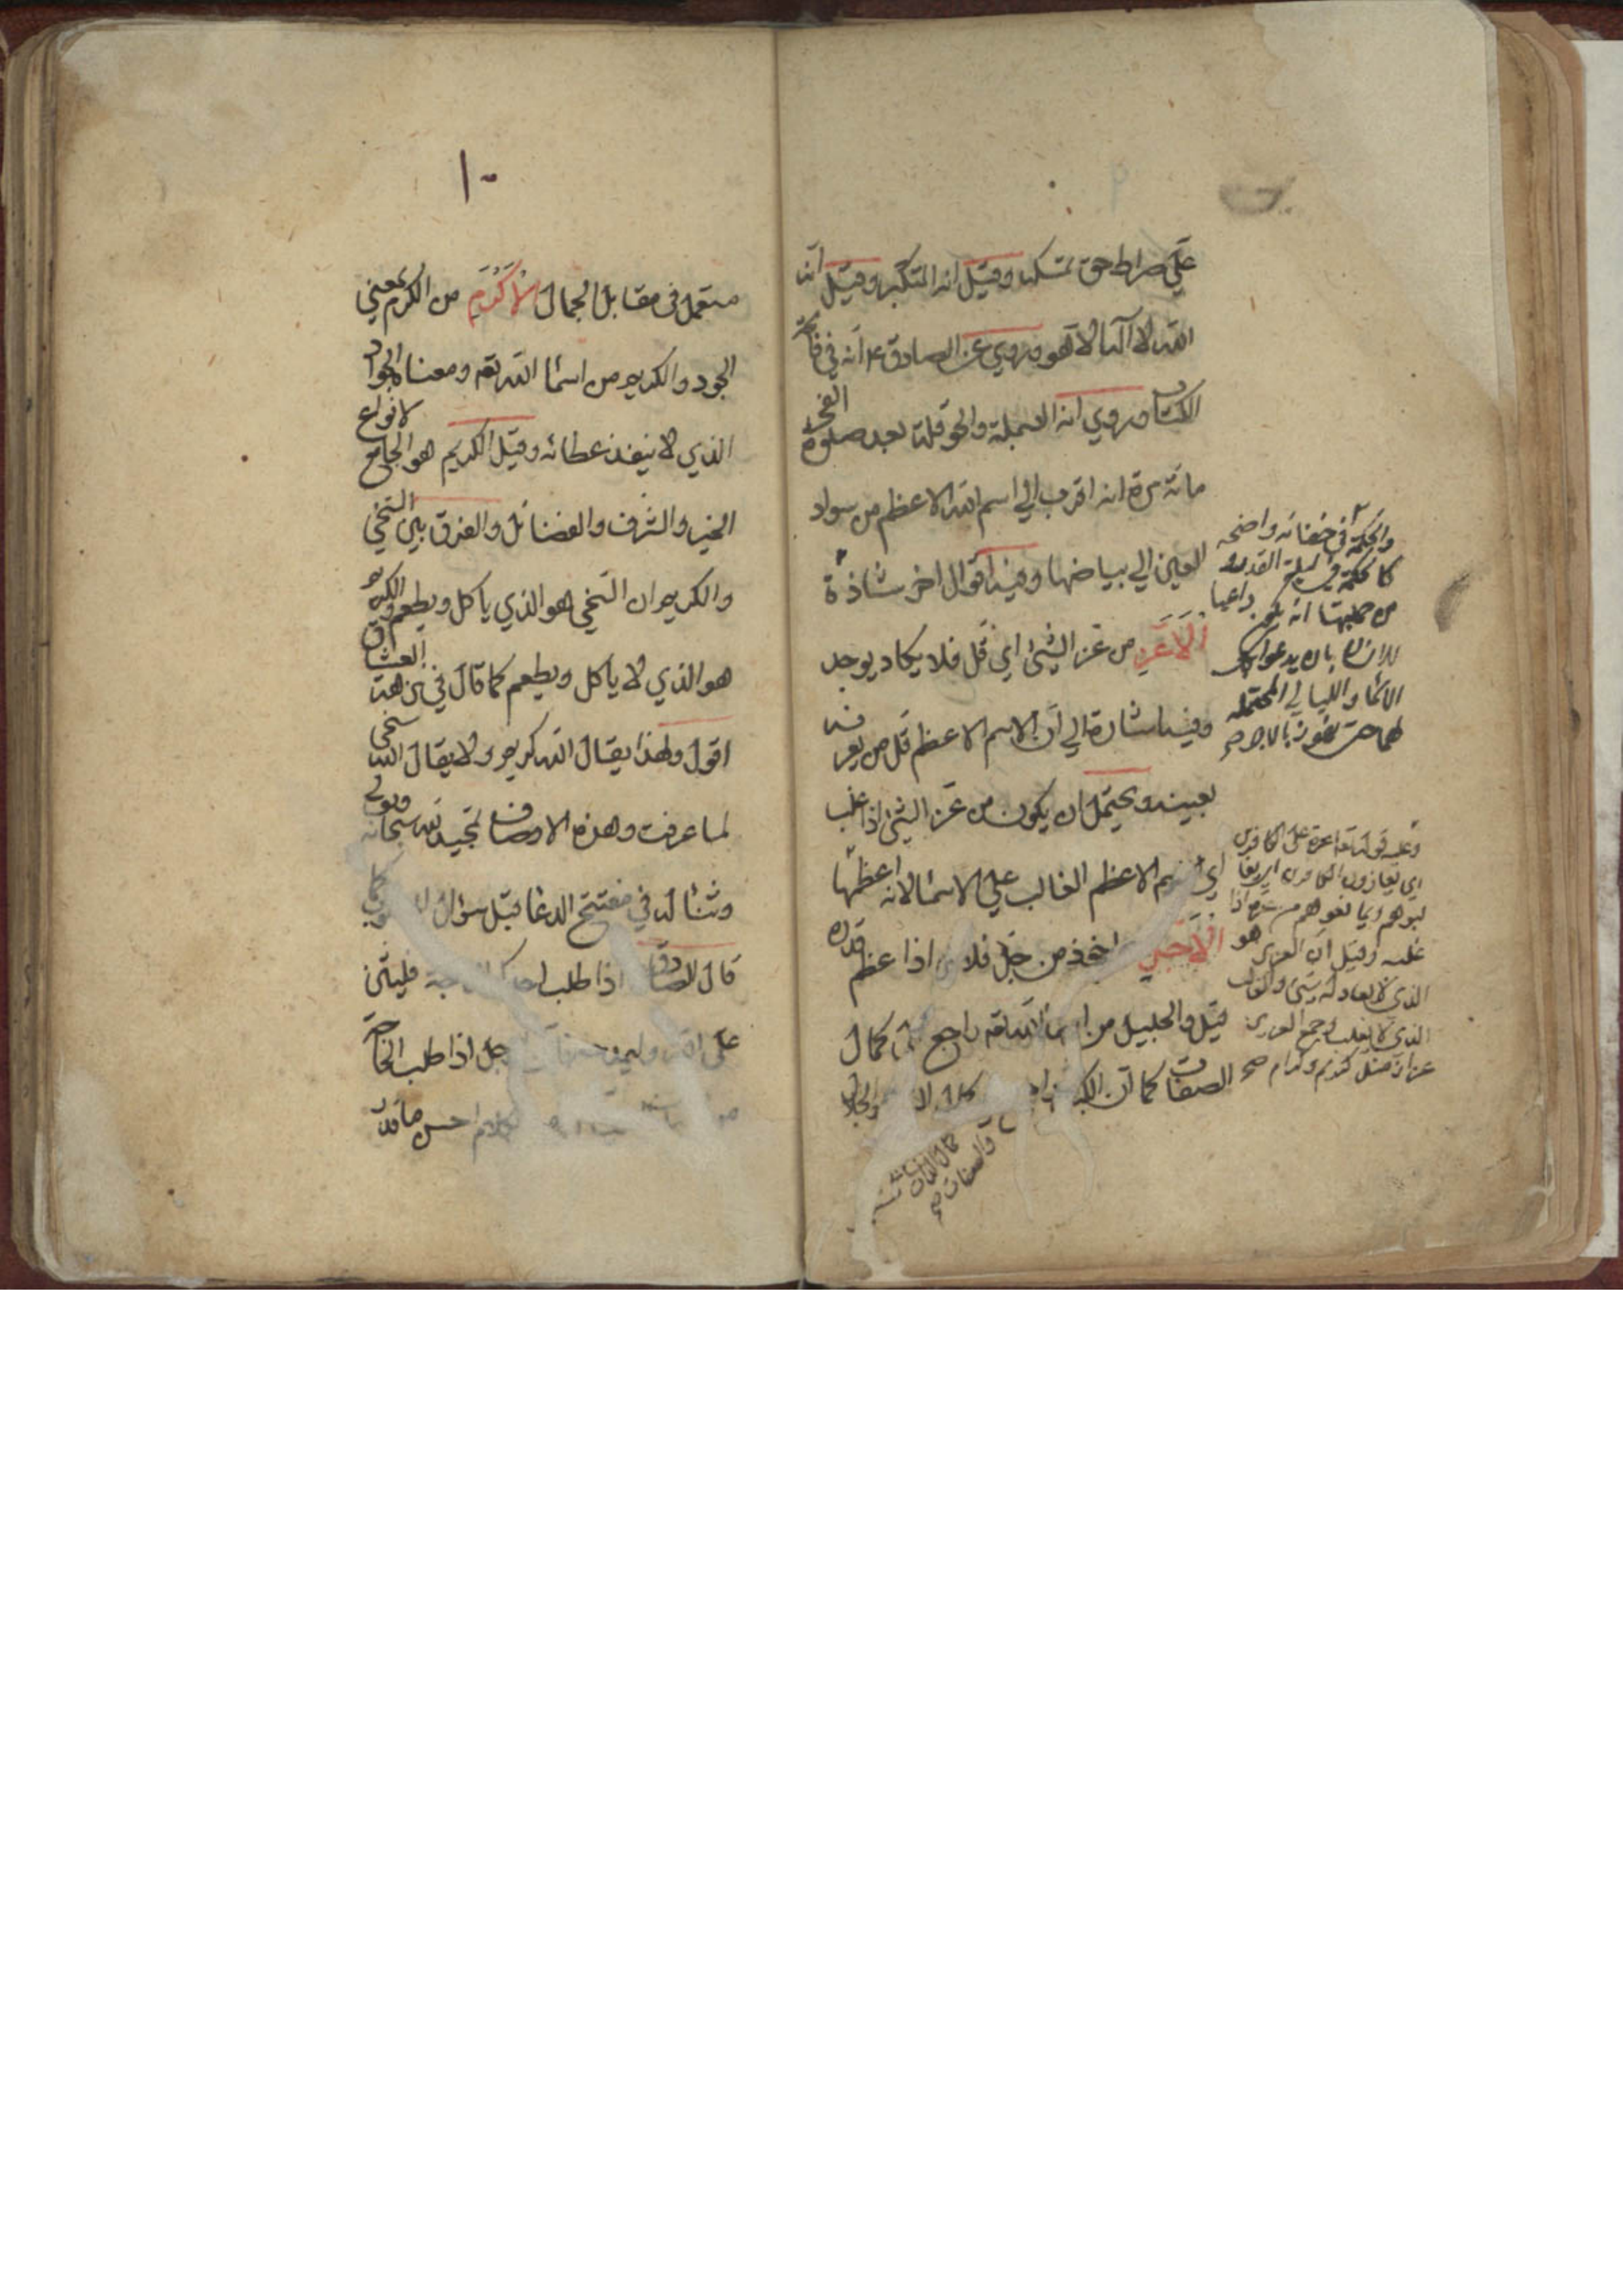 علي صراط حق تمسكه وقيل انه المتكبر وقيل انه
الله لا اله الا هو وروي عن الصادق ع انه في فاتحة
الكتاب وروي انه البسملة والحوقلة بعد صلوة الفجر
مائة مرة انه اقرب الي اسم الله الاعظم من سواد
العين الي بياضها وهنا اقوال اخر شاذة
الاعز من عز الشئ اي قل فلا يكاد يوجد
وفيه اشارة الي ان الاسم الاعظم قل من يعرفه
بعينه ويحتمل ان يكون من عز الشئ اذا غلب
اي الاسم الاعظم الغالب علي الاسما لانه اعظمها
الاجل اخذ من جل فلان اذا عظم قدره
قيل والجليل من اسما الله تعه راجع الي كمال
الصفات كما ان الكبير والجلال
كمال الذات
والصفات صح
والحكمة في خفائه واضحه
كالحكمة في ليلة القدر
من جملتها انه يكون داعيا
للانسان بان يدعوا بكل
الاسما والليالي المحتمله
لها حتى يفوز بالاجر صح
وعليه قوله تعا اعزة على الكافرين
اي يعازون الكافرين اي
يغالبوهم ويمانعوهم من عزه اذا
غلبه وقيل ان العزيز هو
الذي لا يعادله شئ والغالب
الذي لا يغلب وجمع العزيز
عزاز مثل كريم وكرام صح
١٠
مستعمل في مقابل الجمال الاكرم من الكرم بمعني
الجود والكريم من اسما الله تعه ومعناه الجواد
الذي لا ينفد عطائه وقيل الكريم هو الجامع لانواع
الخير والشرف والفضائل والفرق بين السخي
والكريم ان السخي هو الذي ياكل ويطعم والكريم
هو الذي لا ياكل ويطعم كما قال في نزهة العشاق
اقول ولهذا يقال الله كريم ولا يقال الله سخي
لما عرفت وهذه الاوصاف تمجيد لله سبحانه
وثنا له في مفتتح الدعا قبل سؤال
قال الصادق اذا طلب احدكم الحاجة فليثن
على الله وليمدحه فان الرجل اذا طلب الحاجة
الكلام احسن ما قدر